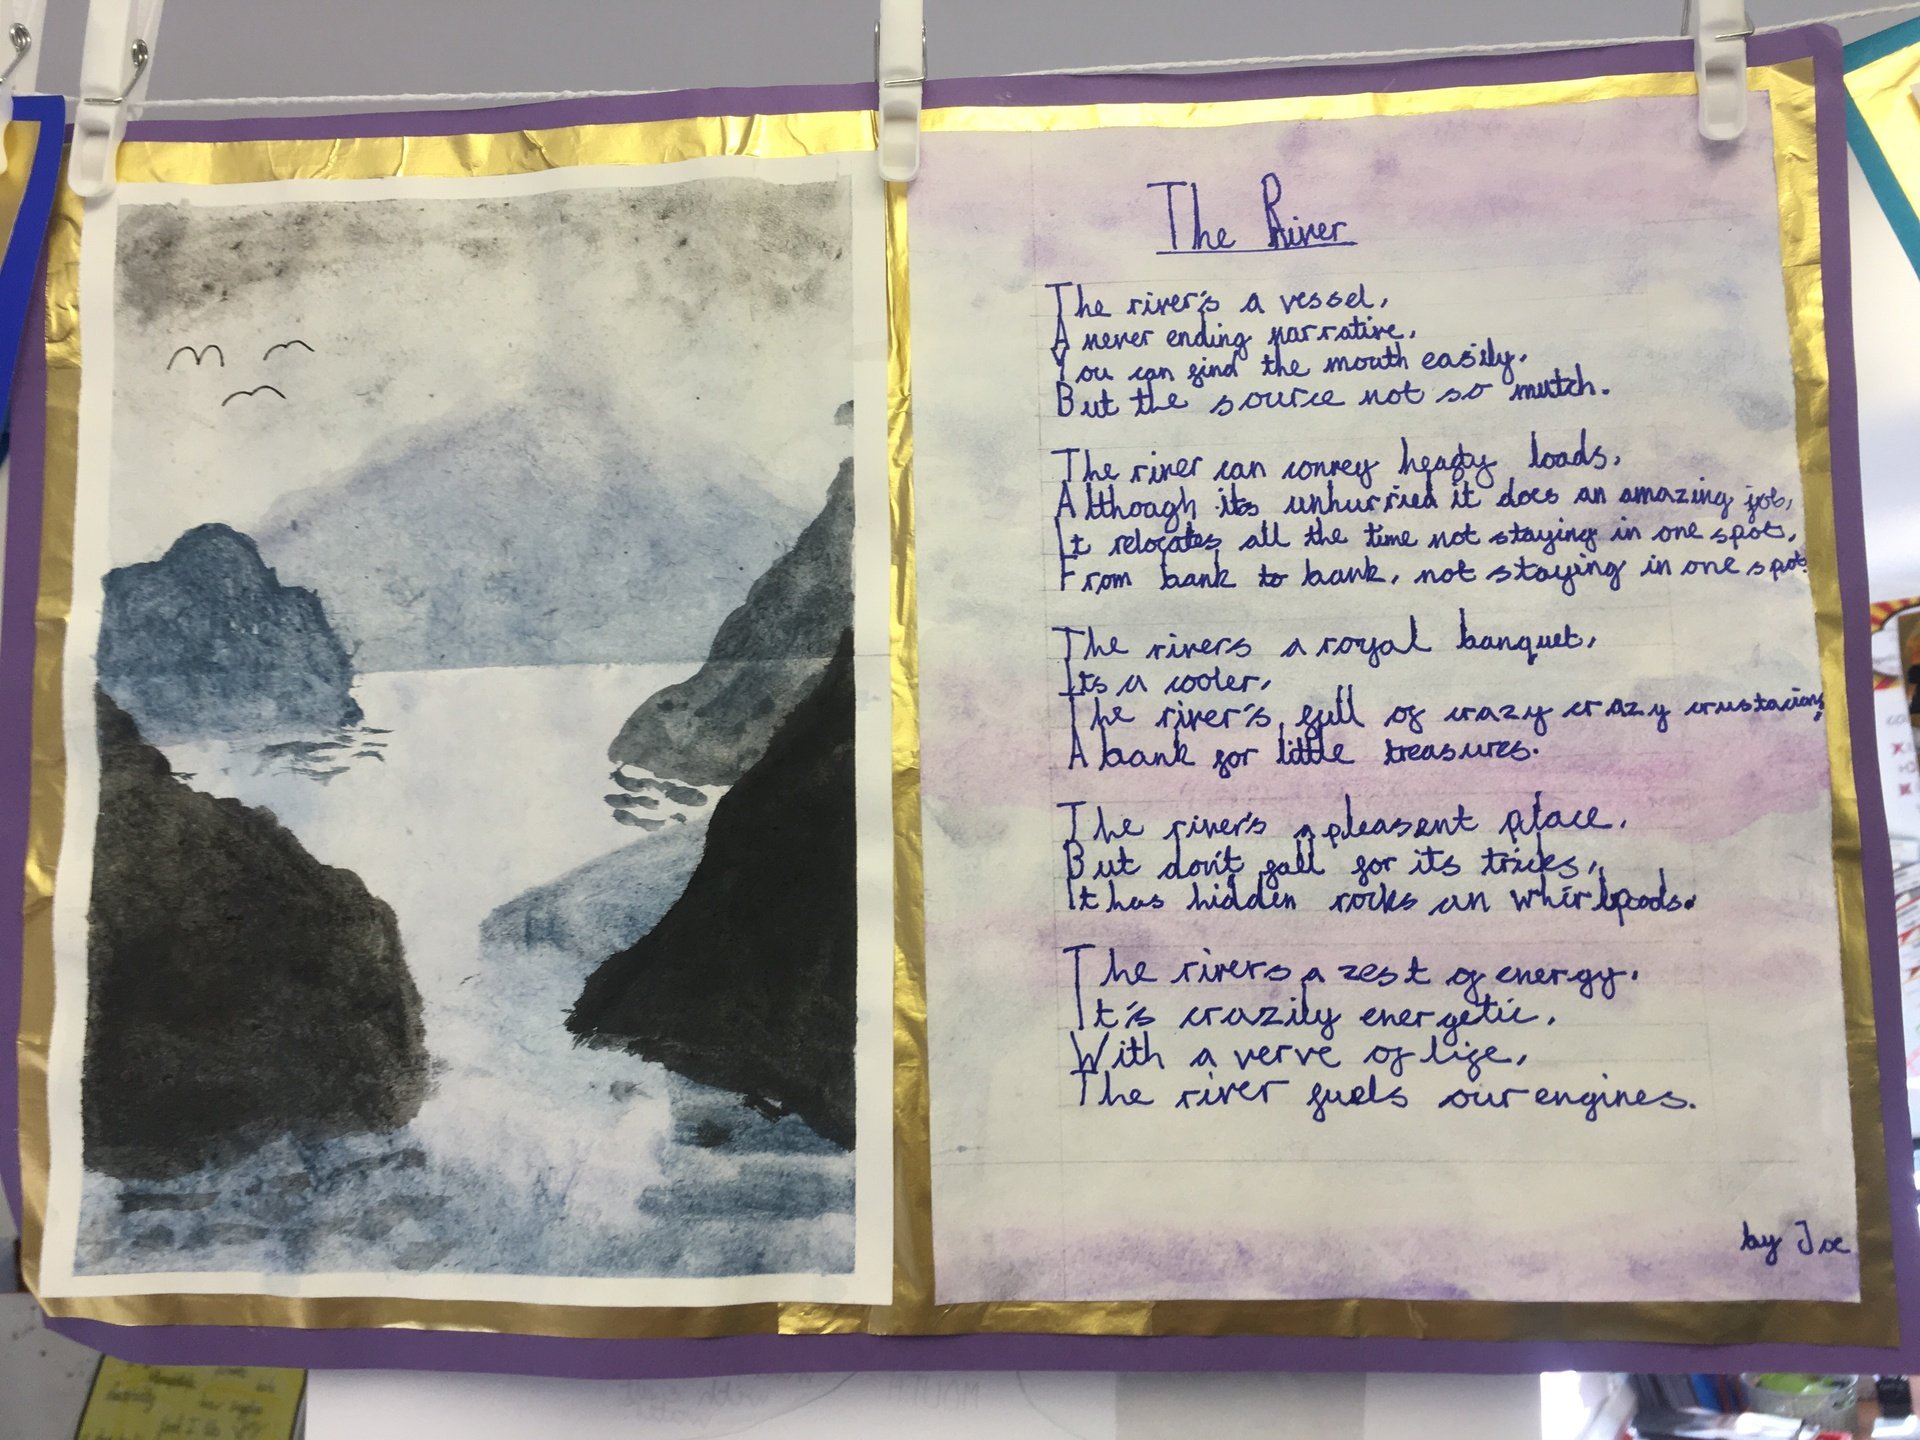 The River
The river's a vessel,
A never ending narrative,
You can find the mouth easily,
But the source not so mutch.
The river can convey heafty loads,
Although its unhurried it does an amazing job,
It relocates all the time not staying in one spot,
From bank to bank, not staying in one spot.
The rivers a royal banquet,
Its a cooler,
The river's full of crazy crazy crustacians,
A bank for little treasures.
The river's a pleasent place,
But don't fall for its tricks,
It has hidden rocks an whirlpools.
The rivers a zest of energy,
It's crazily energetic,
With a verve of life,
The river fuels our engines.
by Joe
MOUTH